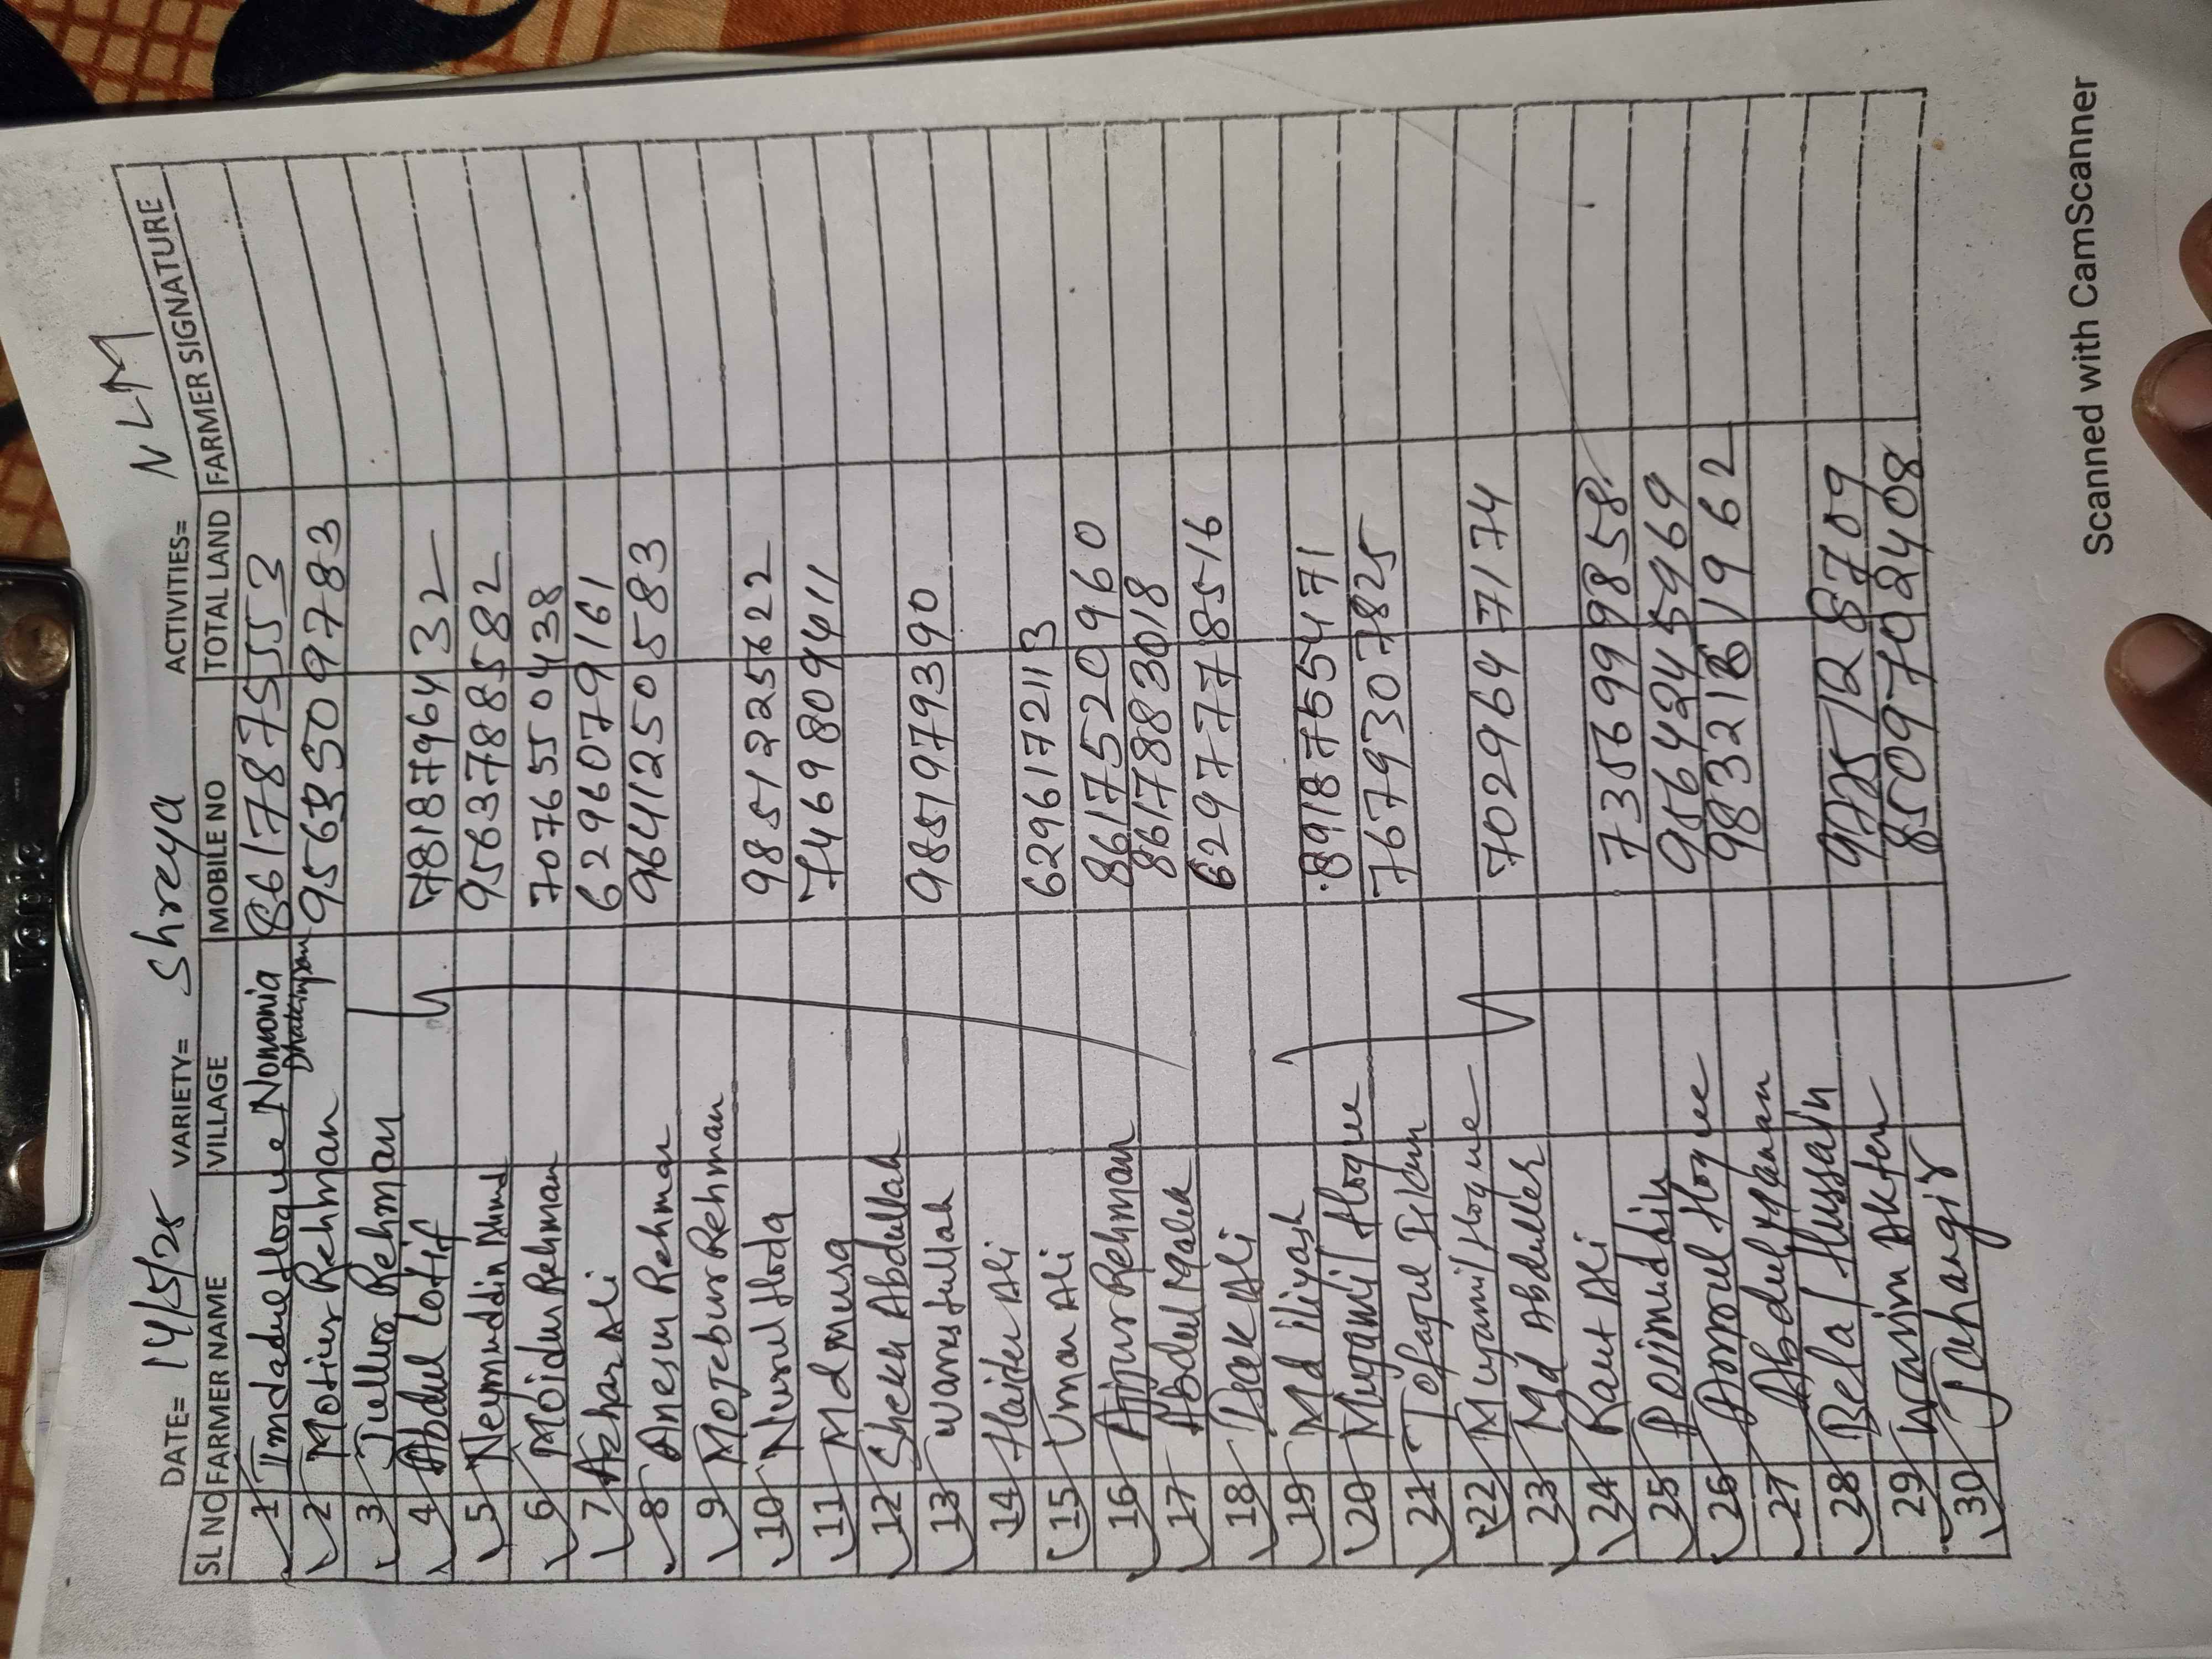 DATE= 14/5/25 VARIETY= Shreya ACTIVITIES= NLM
SL NO FARMER NAME VILLAGE MOBILE NO TOTAL LAND FARMER SIGNATURE
1 Imdadul Hoque Nononia 8617875553
2 Motiur Rehman 9563509783
3 Jullur Rehman
4 Abdul Lotif 7818796432
5 Neymuddin Ahmd 9563788582
6 Moidur Rehman 7076550438
7 Azhar Ali 6296079161
8 Anesur Rehman 9641250583
9 Mojebur Rehman
10 Nurul Hoda 9851225622
11 Md Musa 7469809411
12 Shekh Abdullah
13 Wanesfullah 9851979390
14 Haider Ali
15 Uman Ali 6296172113
16 Ajijur Rehman 8617520960
17 Abdul Malek 8617883018
18 Isak Ali 6297778516
19 Md Iliyash
20 Mujamil Hoque 8918755471
21 Tofajul Islam 7679307825
22 Mujamil Hoque
23 Md Abduller 7029647174
24 Rauf Ali
25 Rosimuddin 7356999858
26 Amrul Hoque 9564245969
27 Abdul
28 Belal Hussain
29 Wasim Akter
30 Jahangir 8509702408
Scanned with CamScanner